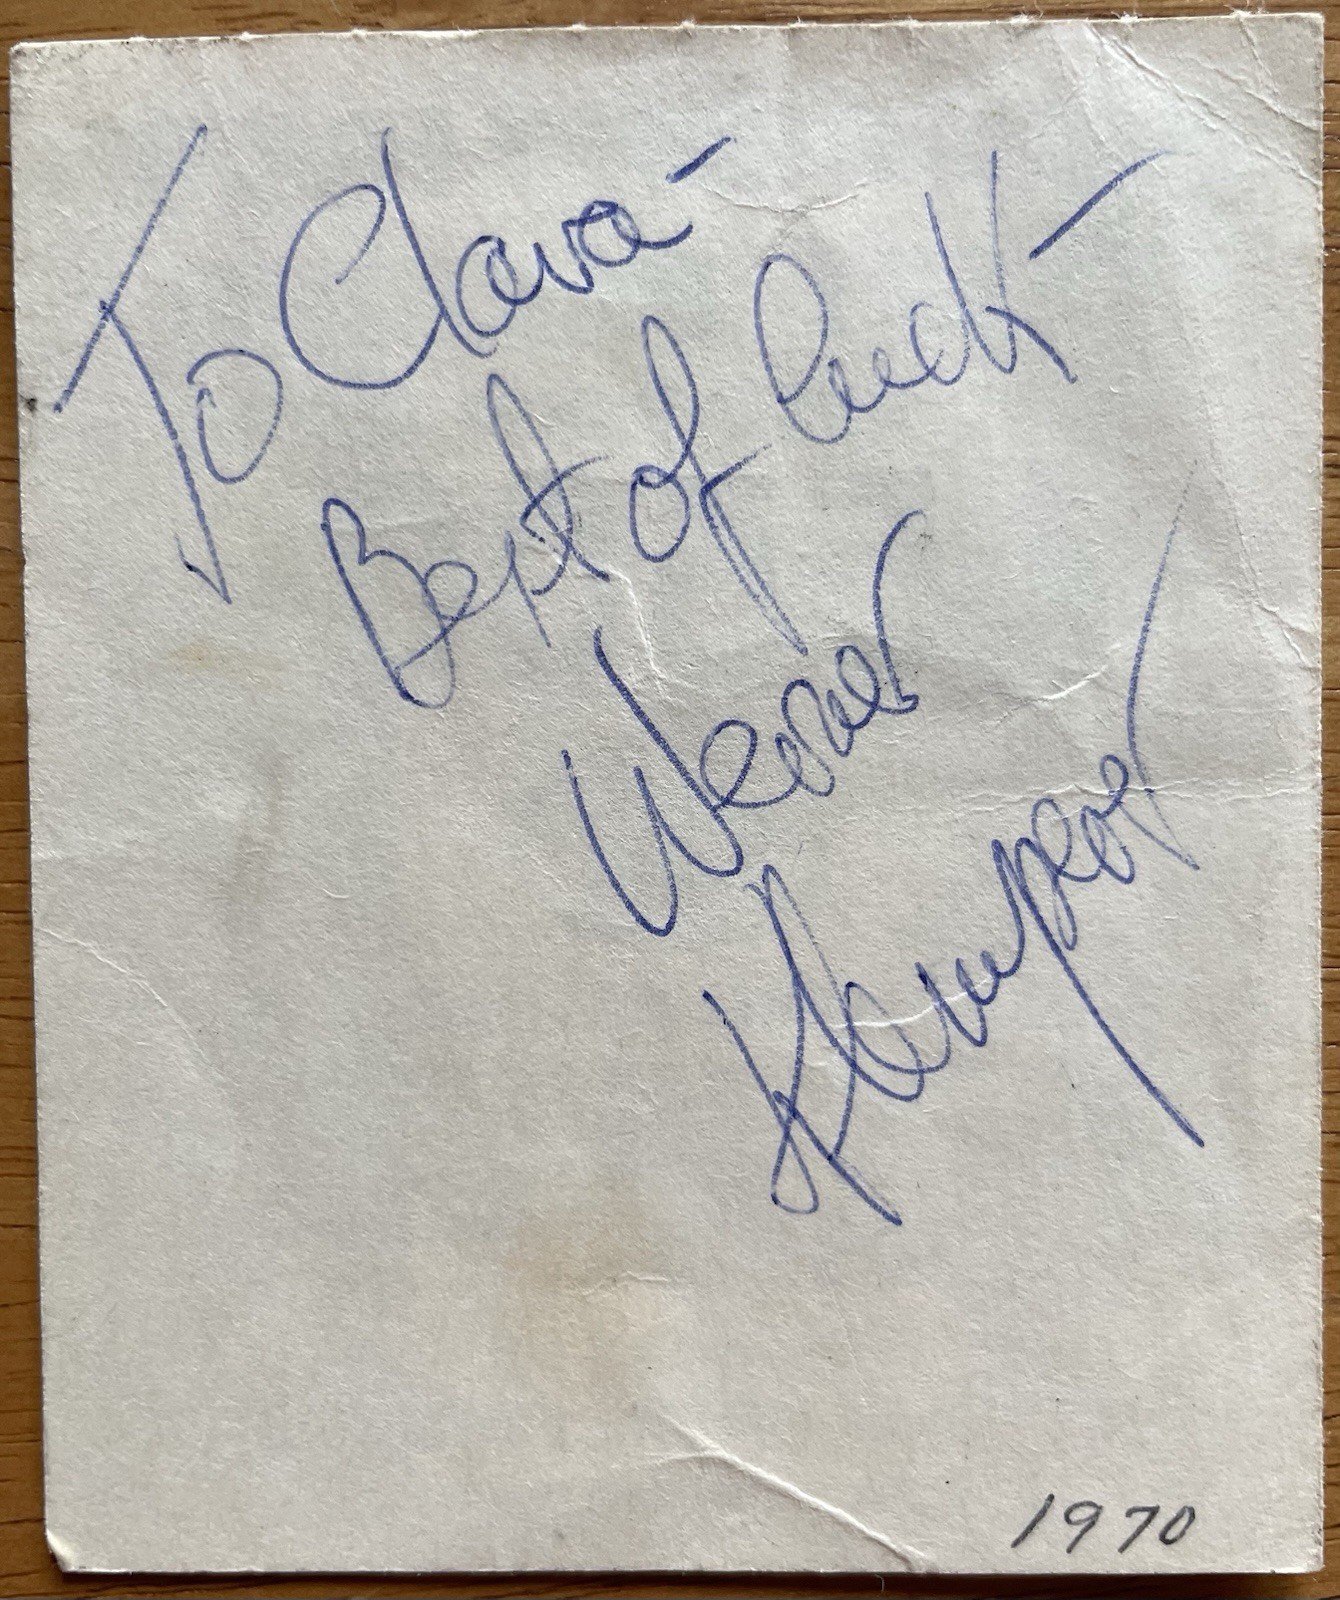 To Clara -
Best of luck -
Werner
Klemperer
1970